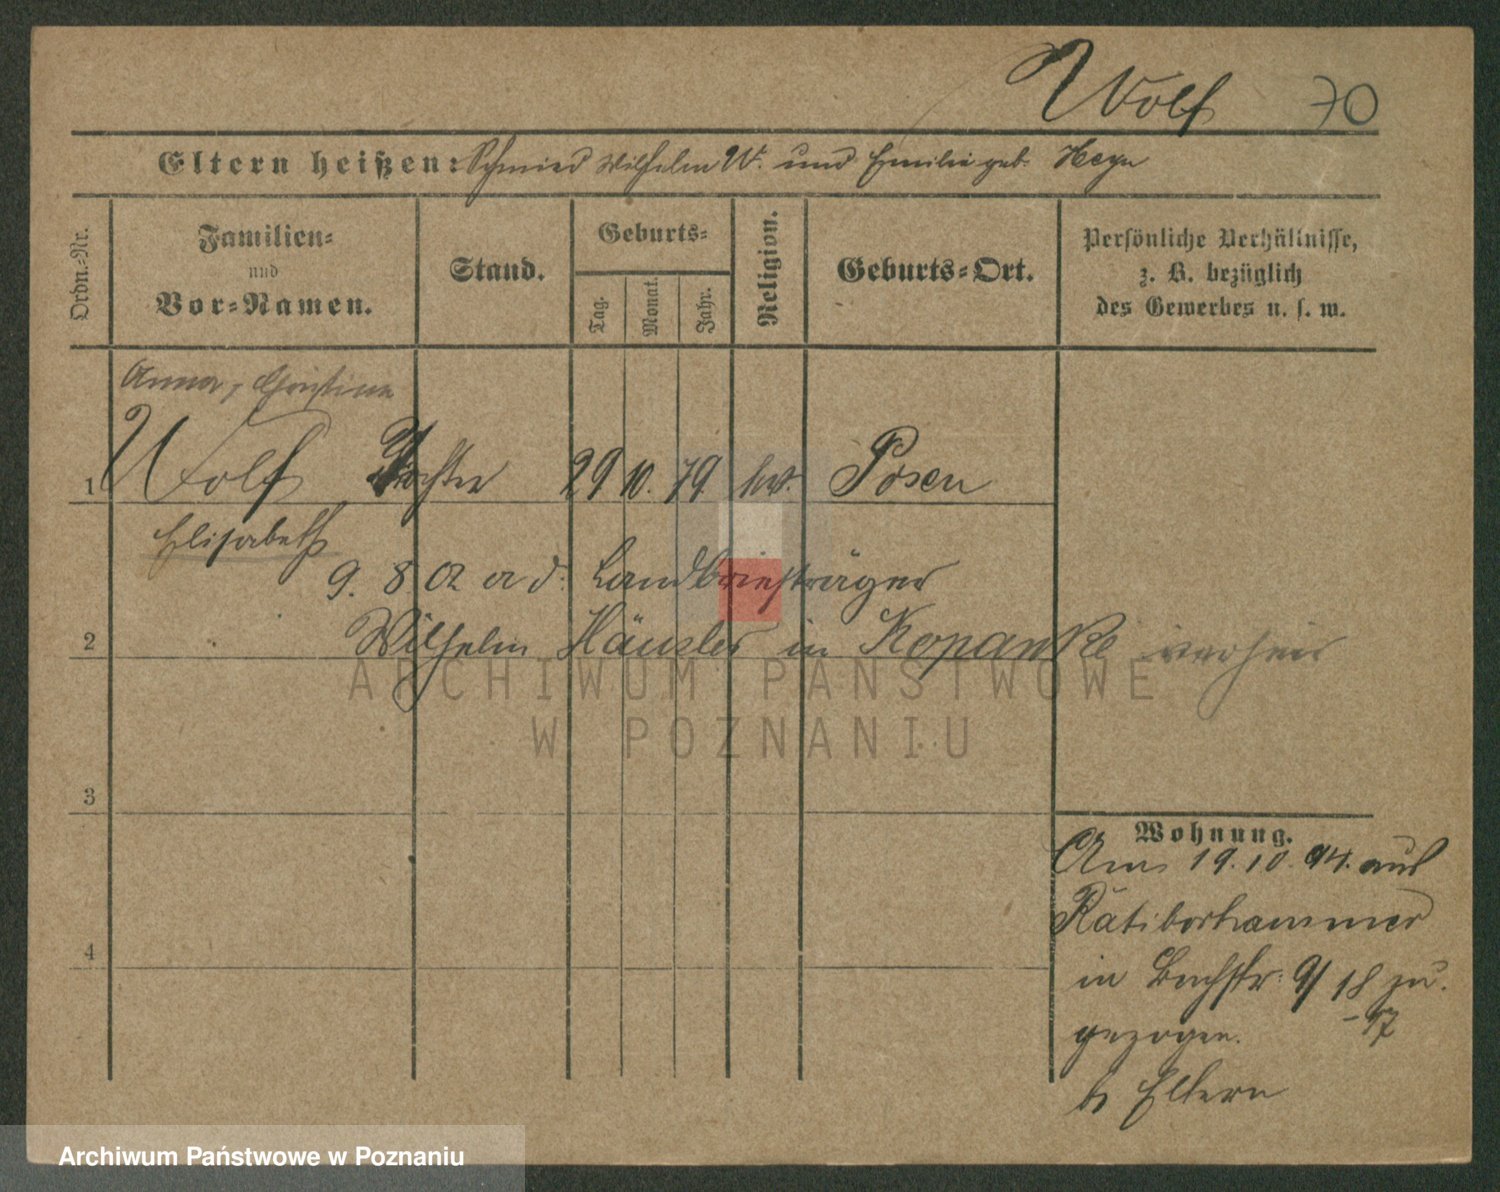 Wolf 70
Eltern heißen: Schmied Wilhelm W. und Emilie geb. Heyn
Ordn.-Nr.
Familien-
und
Vor-Namen.
Stand.
Geburts-
Tag.
Monat.
Jahr.
Religion.
Geburts-Ort.
Persönliche Verhältnisse,
z. B. bezüglich
des Gewerbes u. s. w.
Anna, Christine
1 Wolf Tochter 29 10. 79. Posen
Elisabeth
9. 8. 02 a d. Landbriefträger
2 Wilhelm Häusler in Kopanke verheir
3
Wohnung.
Am 19.10.94. aus
Ratiborhammer
4
in Bachstr. 9/18 zu.
-17
gezogen.
b Eltern
ARCHIWUM PAŃSTWOWE
W POZNANIU
Archiwum Państwowe w Poznaniu